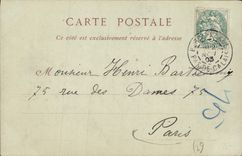 CARTE POSTALE
Ce côté est exclusivement réservé à l'adresse
Monsieur Henri
75 rue des Dames 75
Paris